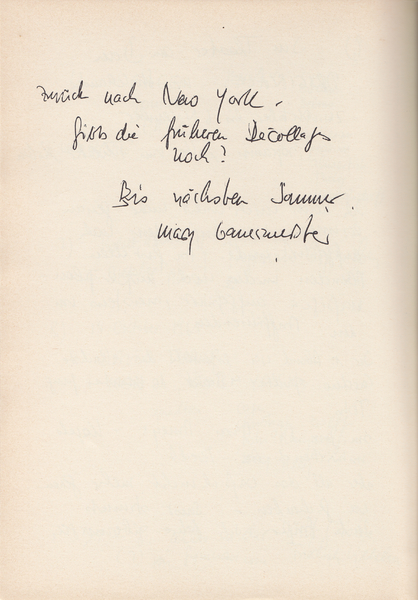 zurück nach New York.
gibts die früheren Décollages
noch?
Bis nächsten Sommer.
mary bauermeister